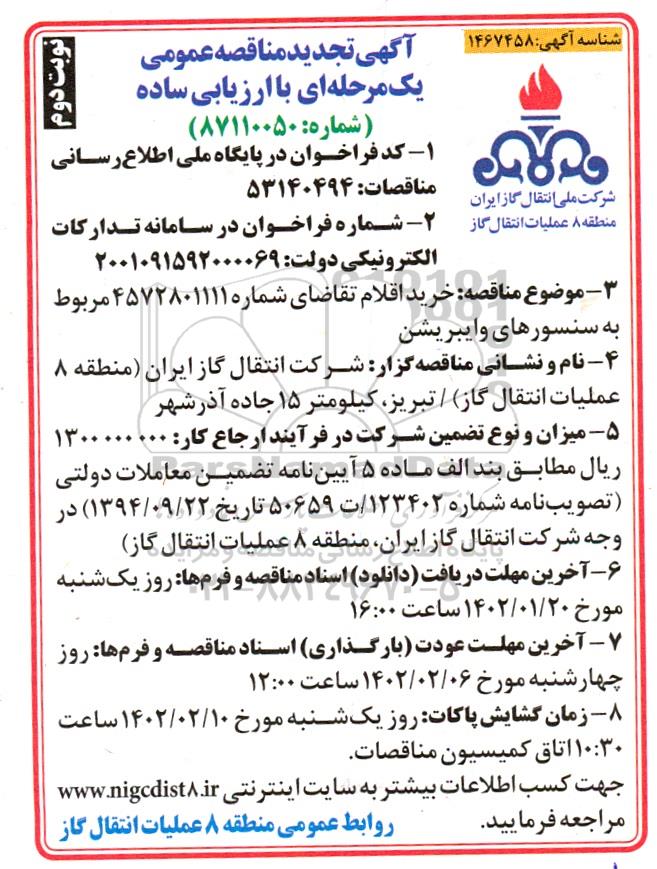 شناسه آگهی: ۱۴۶۷۴۵۸
نوبت دوم
آگهی تجدید مناقصه عمومی
یک مرحله‌ای با ارزیابی ساده
(شماره: ۸۷۱۱۰۰۵۰)
شرکت ملی انتقال گاز ایران
منطقه ۸ عملیات انتقال گاز
۱- کد فراخوان در پایگاه ملی اطلاع‌رسانی
مناقصات: ۵۳۱۴۰۴۹۴
۲- شماره فراخوان در سامانه تدارکات
الکترونیکی دولت: ۲۰۰۱۰۹۱۵۹۲۰۰۰۰۶۹
۳- موضوع مناقصه: خرید اقلام تقاضای شماره ۴۵۷۲۸۰۱۱۱۱ مربوط
به سنسورهای وایبریشن
۴- نام و نشانی مناقصه‌گزار: شرکت انتقال گاز ایران (منطقه ۸
عملیات انتقال گاز) / تبریز، کیلومتر ۱۵ جاده آذرشهر
۵- میزان و نوع تضمین شرکت در فرآیند ارجاع کار: ۱۳۰۰ ۰۰۰ ۰۰۰
ریال مطابق بند الف ماده ۵ آیین‌نامه تضمین معاملات دولتی
(تصویب‌نامه شماره ۱۲۳۴۰۲/ت ۵۰۶۵۹ تاریخ ۱۳۹۴/۰۹/۲۲) در
وجه شرکت انتقال گاز ایران، منطقه ۸ عملیات انتقال گاز)
۶- آخرین مهلت دریافت (دانلود) اسناد مناقصه و فرم‌ها: روز یک‌شنبه
مورخ ۱۴۰۲/۰۱/۲۰ ساعت ۱۶:۰۰
۷- آخرین مهلت عودت (بارگذاری) اسناد مناقصه و فرم‌ها: روز
چهارشنبه مورخ ۱۴۰۲/۰۲/۰۶ ساعت ۱۲:۰۰
۸- زمان گشایش پاکات: روز یک‌شنبه مورخ ۱۴۰۲/۰۲/۱۰ ساعت
۱۰:۳۰ اتاق کمیسیون مناقصات.
جهت کسب اطلاعات بیشتر به سایت اینترنتی www.nigcdist۸.ir
مراجعه فرمایید.
روابط عمومی منطقه ۸ عملیات انتقال گاز